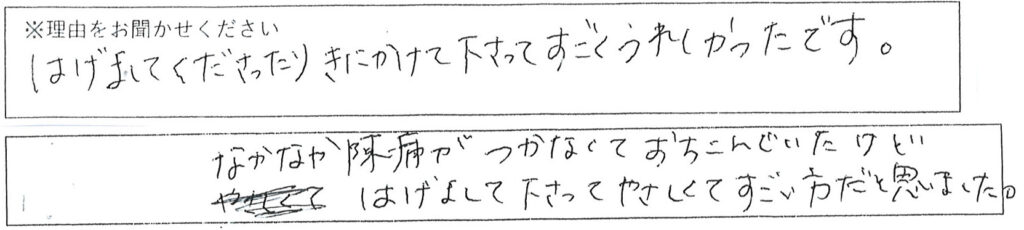 ※理由をお聞かせください
はげましてくださったり きにかけて下さってすごくうれしかったです。
なかなか陣痛が つかなくておちこんでいたけど
はげまして下さってやさしくてすごい方だと思いました。